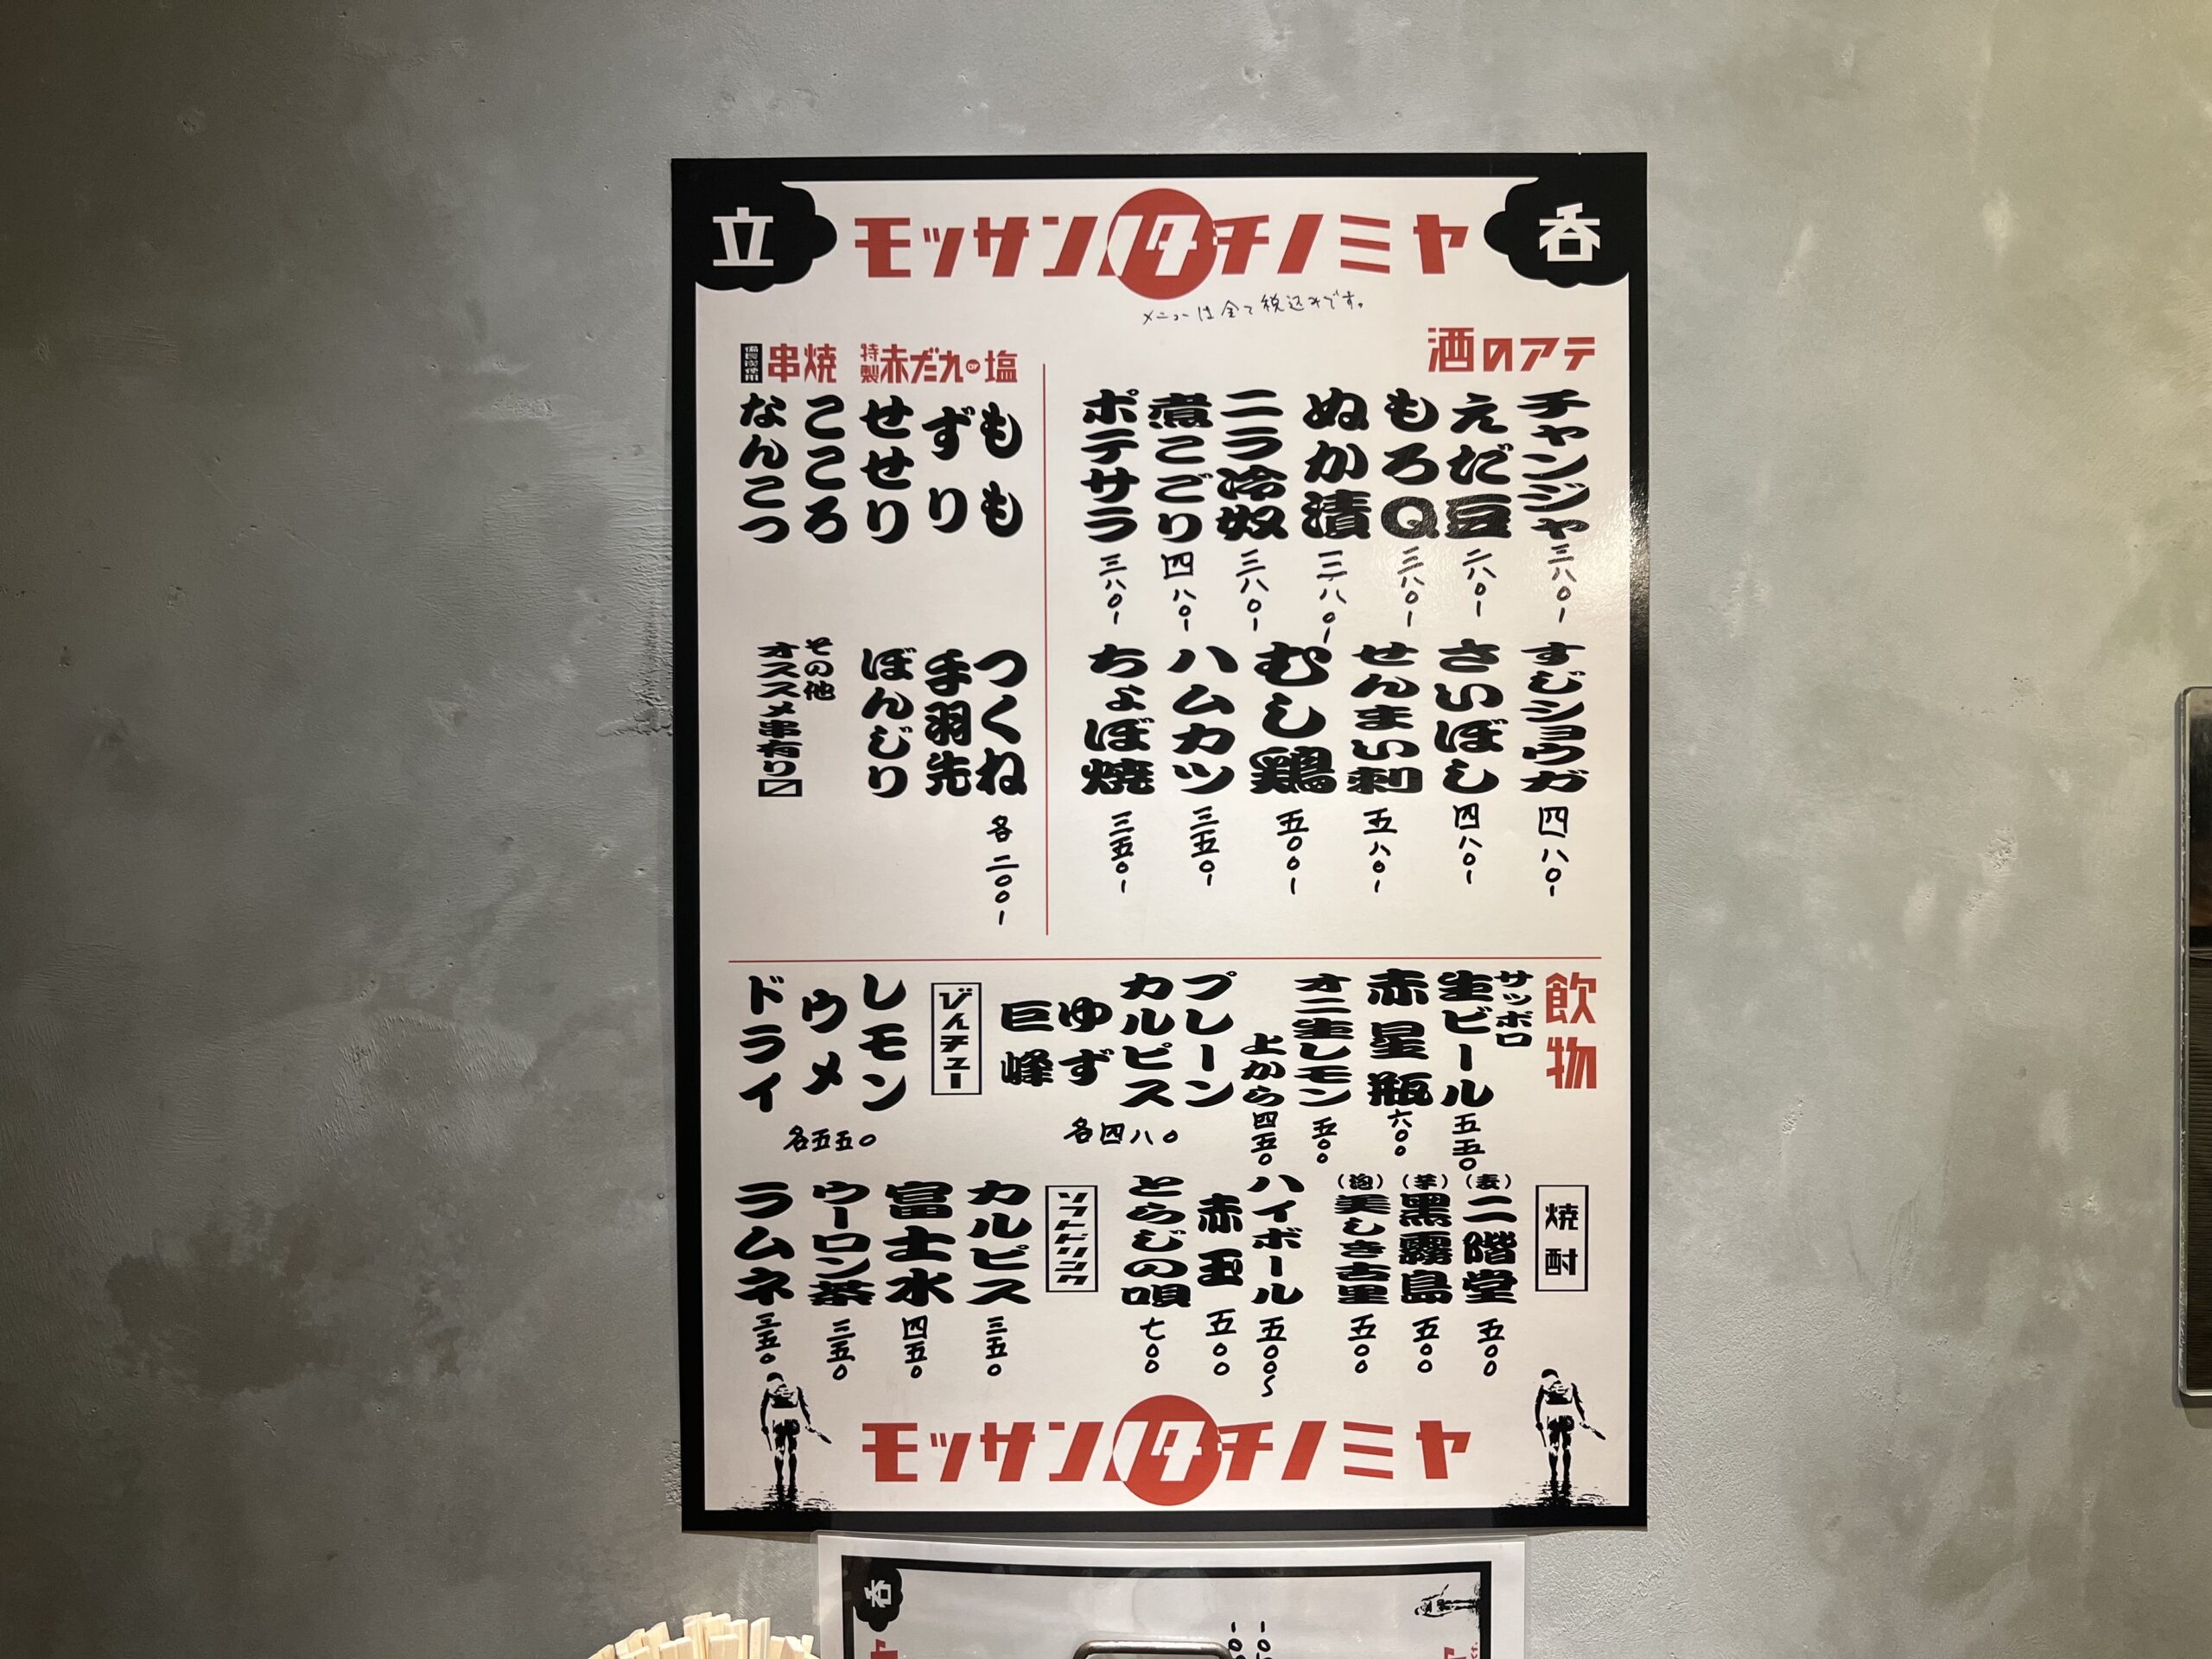 立
モッサンノタチノミヤ
呑
メニューは全て税込みです。
酒のアテ
チャンジャ 三八〇-
えだ豆 二八〇-
もろQ 三八〇-
ぬか漬 三八〇-
ニラ冷奴 三八〇-
煮こごり 四八〇-
ポテサラ 三八〇-
すじショウガ 四八〇-
さいぼし 四八〇-
せんまい刺 五八〇-
むし鶏 五〇〇-
ハムカツ 三五〇-
ちょぼ焼 三五〇-
備長炭使用
串焼
特製赤だれor塩
もも
ずり
せせり
こころ
なんこつ
つくね
手羽先
ぼんじり
各二〇〇-
その他
オススメ串有り〼
飲物
サッポロ
生ビール 五五〇
赤星瓶 六〇〇
オニ生レモン 五〇〇
上から 四五〇
プレーン
カルピス
ゆず
巨峰
各四八〇
びんチュー
レモン
ウメ
ドライ
各五五〇
焼酎
(麦)二階堂 五〇〇
(芋)黒霧島 五〇〇
(泡)美しき古里 五〇〇
ハイボール 五〇〇〜
赤玉 五〇〇
とらじの唄 七〇〇
ソフトドリンク
カルピス 三五〇
富士水 四五〇
ウーロン茶 三五〇
ラムネ 三五〇
モッサンノタチノミヤ
呑